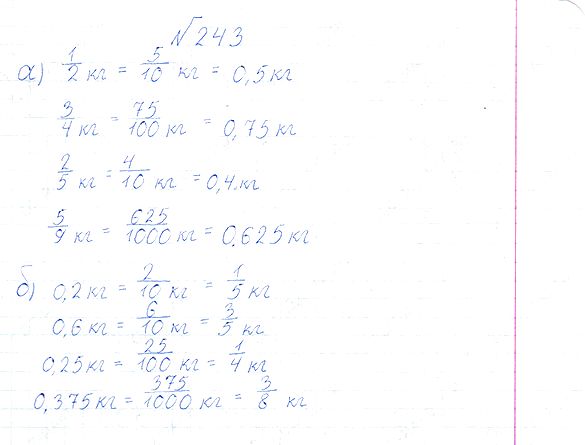 №243
а) 1/2 кг = 5/10 кг = 0,5 кг
3/4 кг = 75/100 кг = 0,75 кг
2/5 кг = 4/10 кг = 0,4 кг
5/9 кг = 625/1000 кг = 0,625 кг
б) 0,2 кг = 2/10 кг = 1/5 кг
0,6 кг = 6/10 кг = 3/5 кг
0,25 кг = 25/100 кг = 1/4 кг
0,375 кг = 375/1000 кг = 3/8 кг